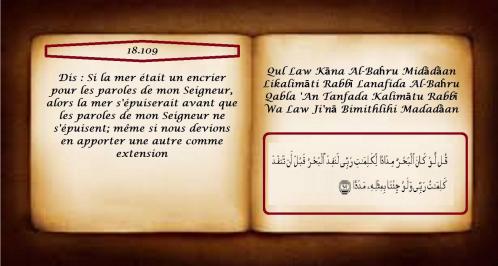 18.109
Dis : Si la mer était un encrier
pour les paroles de mon Seigneur,
alors la mer s'épuiserait avant que
les paroles de mon Seigneur ne
s'épuisent; même si nous devions
en apporter une autre comme
extension
Qul Law Kāna Al-Baĥru Midādāan
Likalimāti Rabbī Lanafida Al-Baĥru
Qabla 'An Tanfada Kalimātu Rabbī
Wa Law Ji'nā Bimithlihi Madadāan
قُل لَّوْ كَانَ ٱلْبَحْرُ مِدَادًا لِّكَلِمَٰتِ رَبِّى لَنَفِدَ ٱلْبَحْرُ قَبْلَ أَن تَنفَدَ
كَلِمَٰتُ رَبِّى وَلَوْ جِئْنَا بِمِثْلِهِۦ مَدَدًا ١٠٩